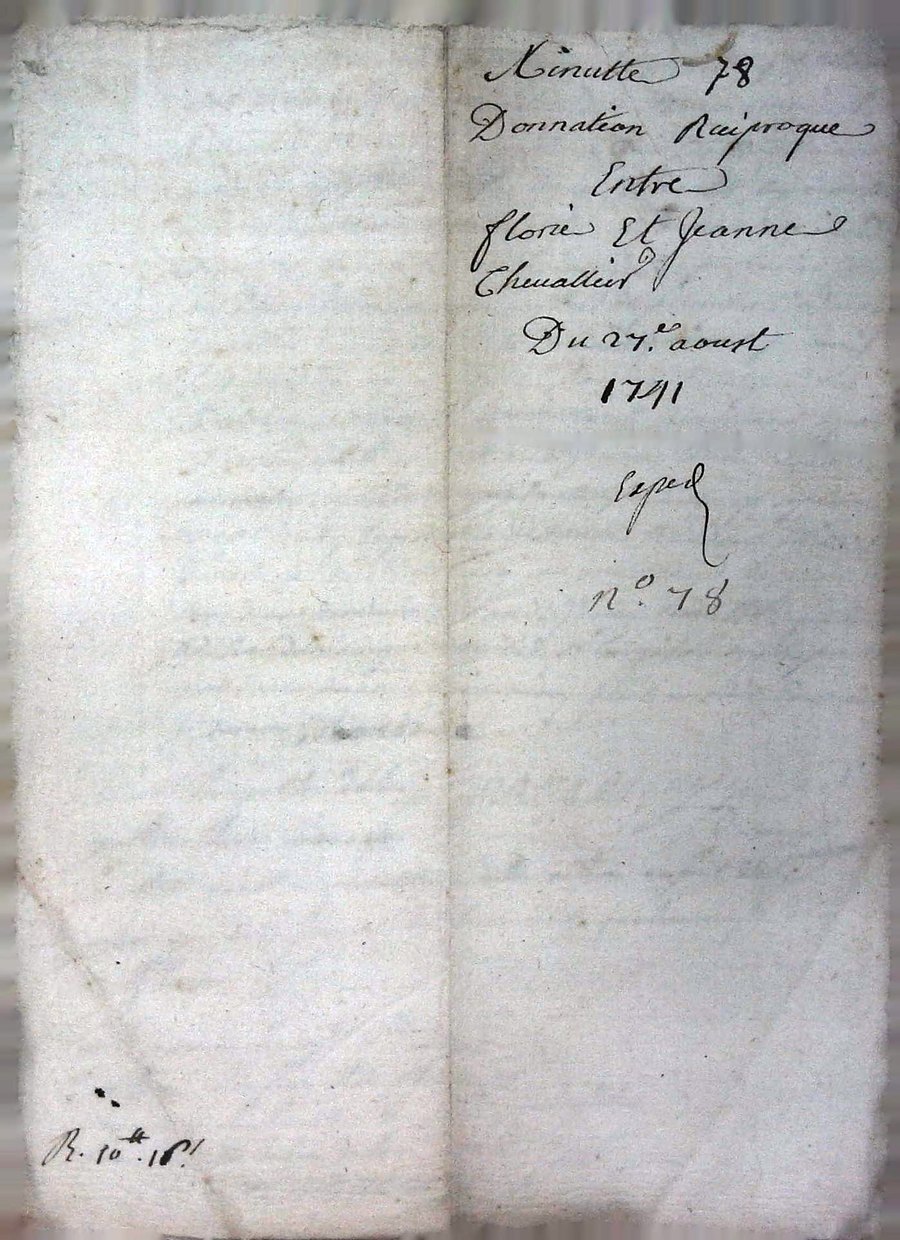 Minutte 78
Donnation Reciproque
Entre
florie Et Jeanne
Chevallier
Du 27.e aoust
1741
Exped
n.º 78
R. 10tt. 16s